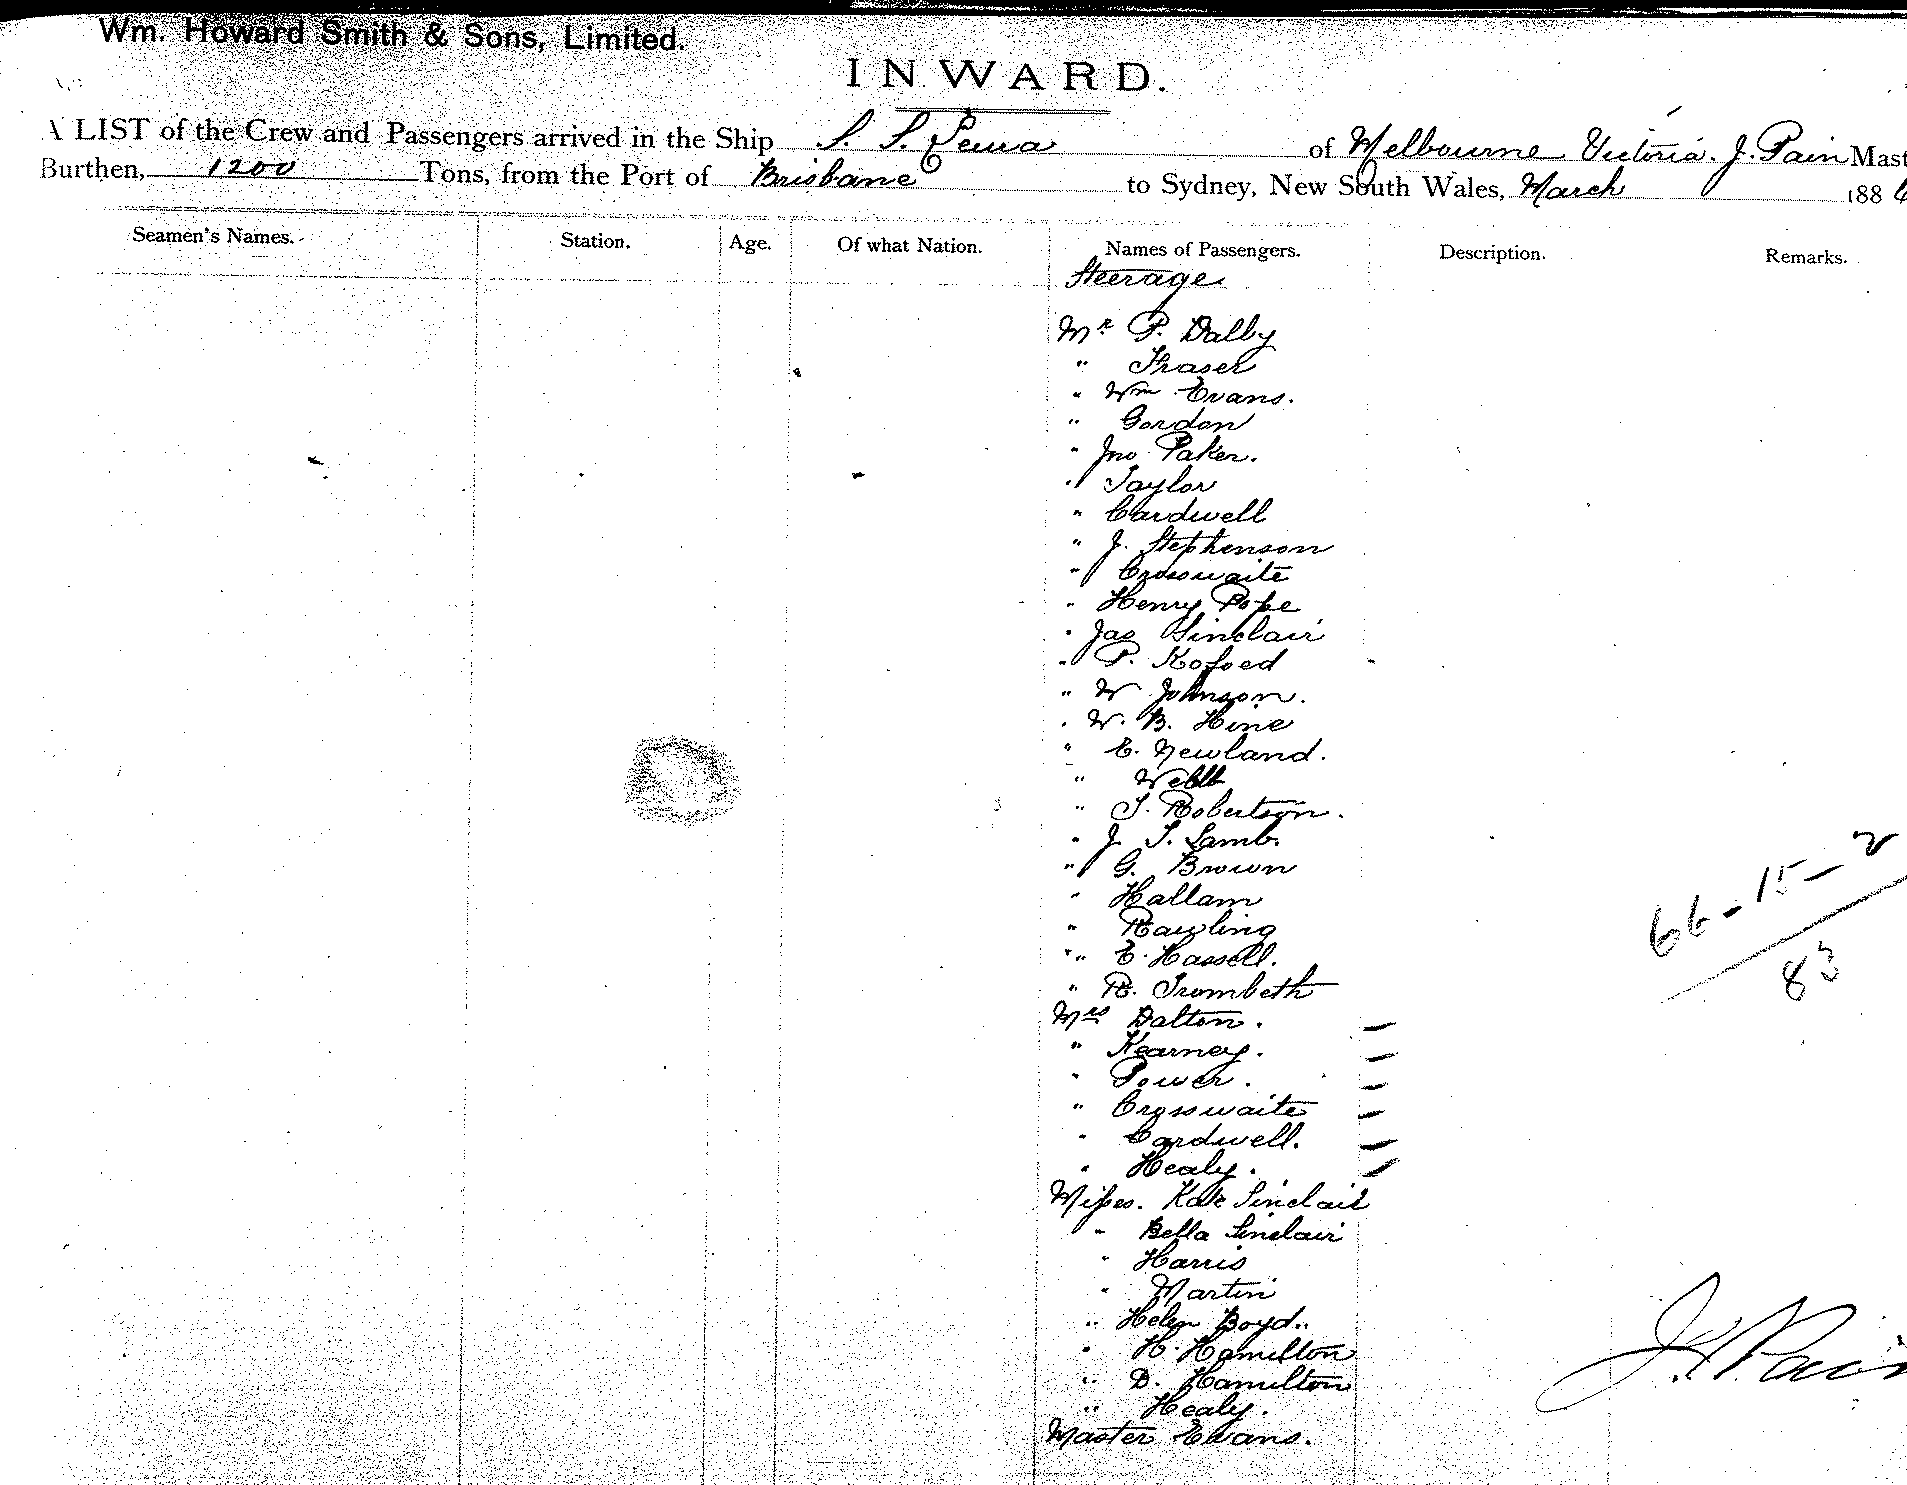 Wm. Howard Smith & Sons, Limited.
INWARD.
A LIST of the Crew and Passengers arrived in the Ship S. S. of Melbourne Victoria. J. Pain Mast
Burthen, 1200 Tons, from the Port of Brisbane to Sydney, New South Wales, March 188
Seamen's Names. Station. Age. Of what Nation. Names of Passengers. Description. Remarks.
Steerage
Mr P. Dalby
" Fraser
" Wm Evans.
" Gordon
" Jno Paker.
" Taylor
" Cardwell
" J. Stephenson
" Crosswaite
" Henry Pope
" Jas Sinclair
" P. Kofoed
" W Johnson.
" W. B. Hine
" E. Newland.
" Webb
" T. Robertson.
" J. T. Lamb.
" G. Brown
" Hallam
" Rawling
" E. Hassell.
" R. Trombeth
Mrs Dalton.
" Kearney.
" Power.
" Crosswaite
" Cardwell.
" Healy.
Misses. Kate Sinclair
" Bella Sinclair
" Harris
" Martin
" Helen Boyd..
" H. Hamilton
" D. Hamilton
" Healy.
Master Evans.
66-15-2
83